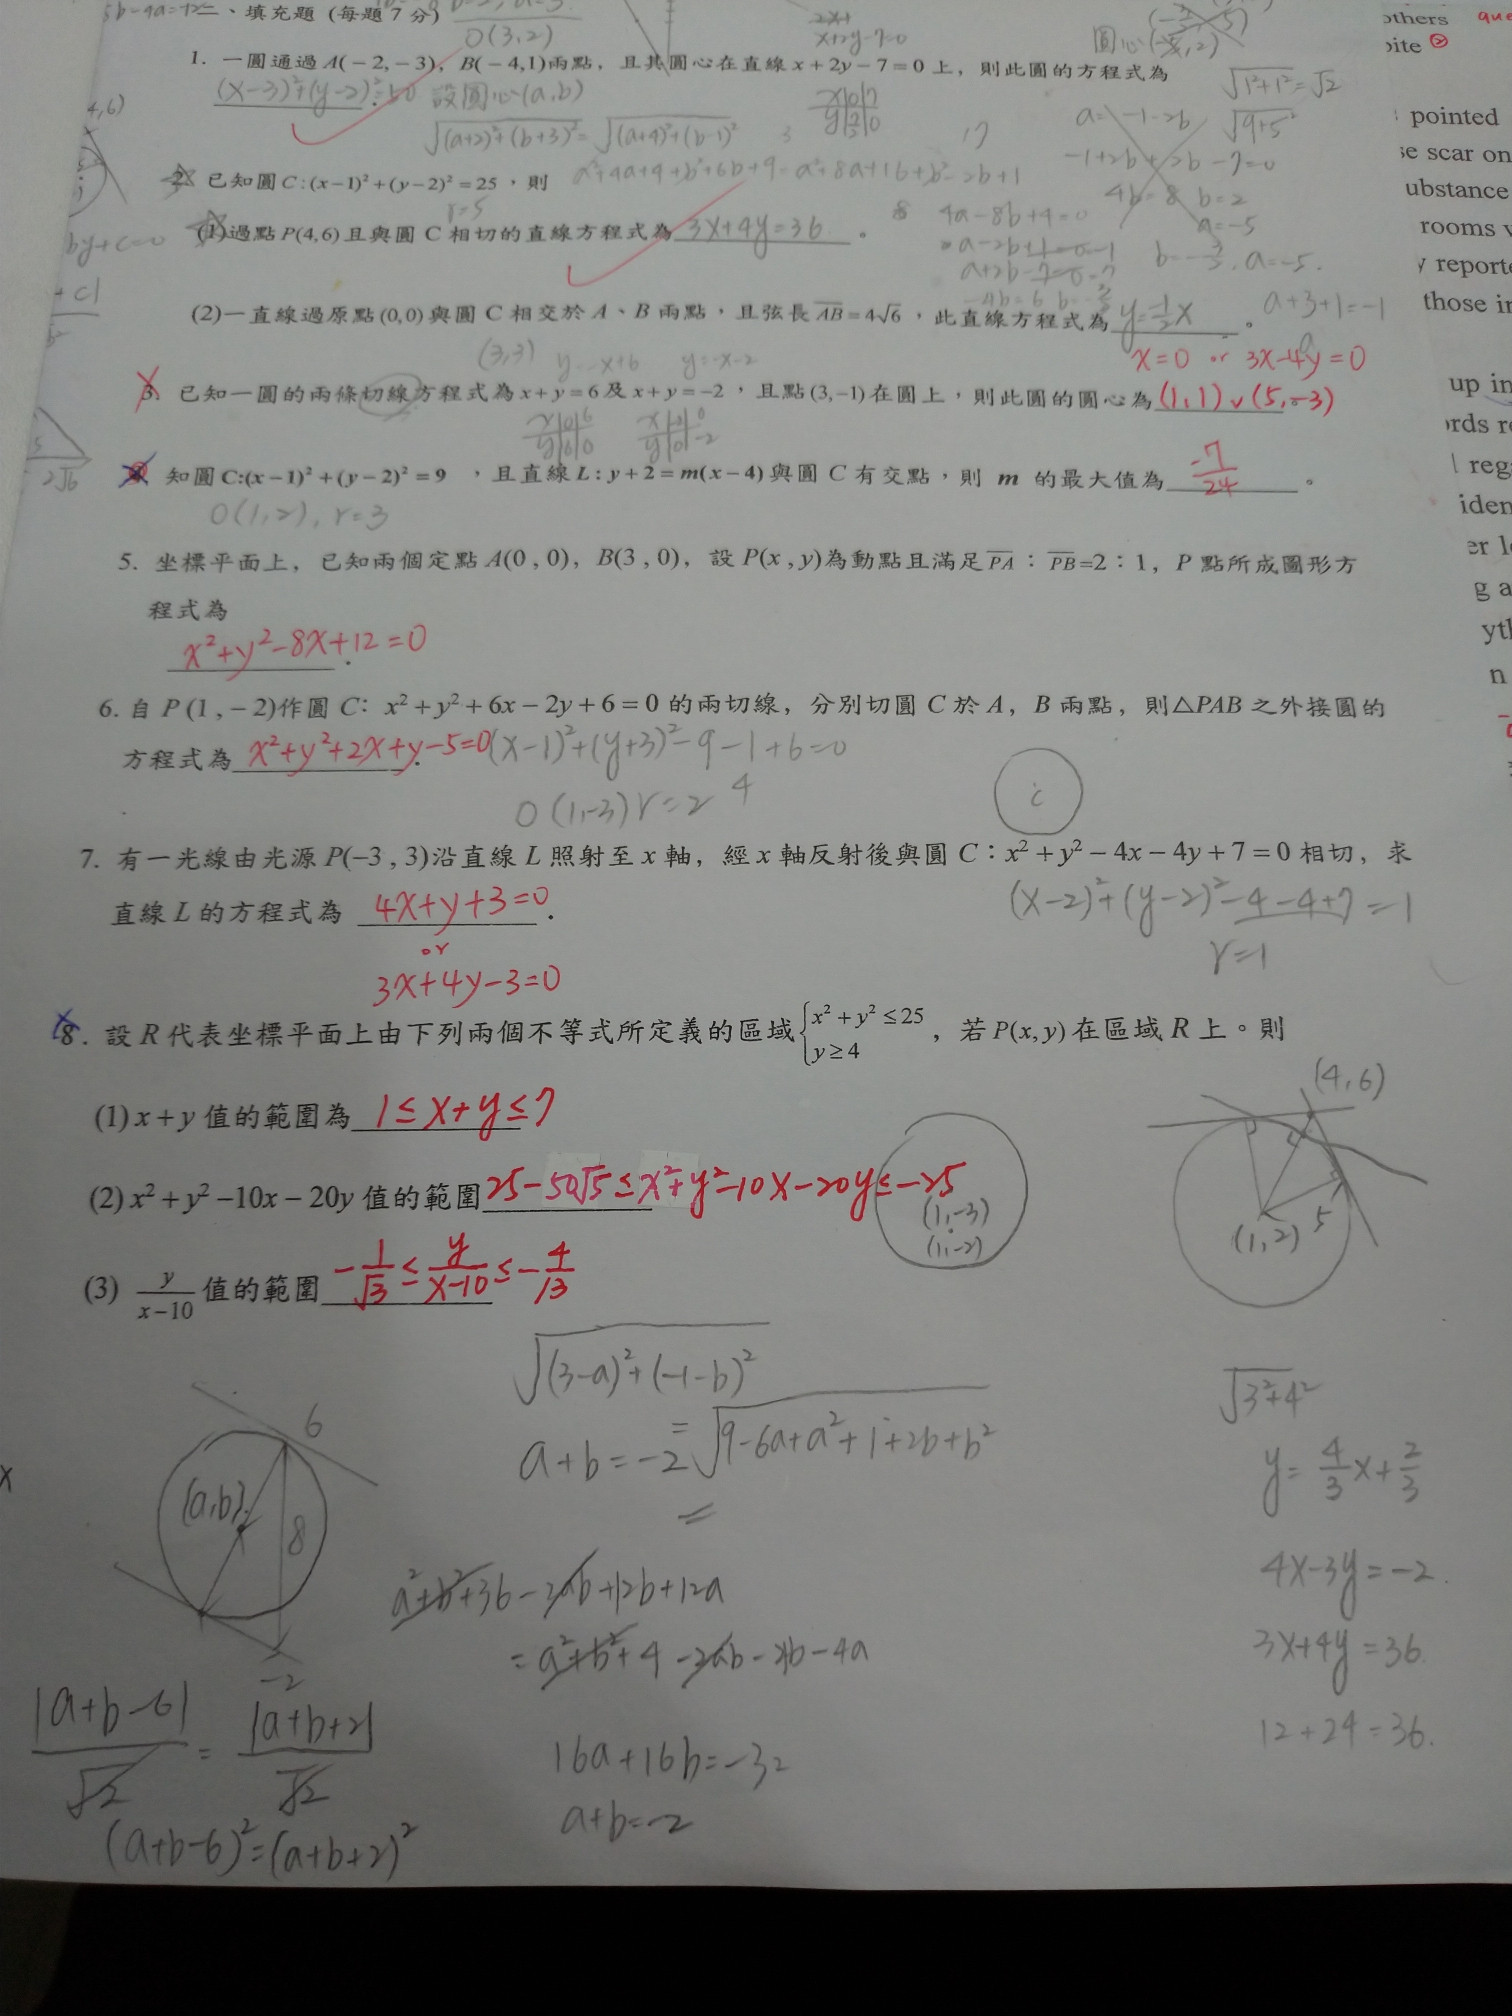 二、填充題 (每題 7 分)
O(3,2)
x+2y-7=0
圓心
1. 一圓通過 A(−2,−3), B(−4,1)兩點, 且其圓心在直線 x+2y−7=0 上, 則此圓的方程式為
(x-3)²+(y-2)²=50 設圓心(a,b)
√1²+1²=√2
√(a+2)²+(b+3)²=√(a+4)²+(b-1)²
a=-1-2b
√9+5²
2. 已知圓 C:(x−1)²+(y−2)²=25,則
a²+4a+4+b²+6b+9=a²+8a+16+b²-2b+1
-1+2b+2b-7=0
4b=8 b=2
a=-5
r=5
(1)過點 P(4,6) 且與圓 C 相切的直線方程式為 3x+4y=36 。
4a-8b+4=0
(2)一直線過原點 (0,0) 與圓 C 相交於 A、B 兩點,且弦長 AB=4√6,此直線方程式為 y=½x 。
a+3+1=-1
x=0 or 3x-4y=0
(3,3) y=-x+6 y=-x-2
3. 已知一圓的兩條切線方程式為 x+y=6 及 x+y=−2,且點 (3,−1) 在圓上,則此圓的圓心為 (1,1)∨(5,-3)
知圓 C:(x−1)²+(y−2)²=9 ,且直線 L:y+2=m(x−4) 與圓 C 有交點,則 m 的最大值為 -7/24 。
O(1,2), r=3
5. 坐標平面上, 已知兩個定點 A(0,0), B(3,0), 設 P(x,y)為動點且滿足 PA:PB=2:1, P 點所成圖形方
程式為
x²+y²-8x+12=0 .
6. 自 P(1,−2)作圓 C: x²+y²+6x−2y+6=0 的兩切線, 分別切圓 C 於 A, B 兩點, 則△PAB 之外接圓的
方程式為 x²+y²+2x+y-5=0 . (x-1)²+(y+3)²-9-1+6=0
O(1,-3) r=2 4
7. 有一光線由光源 P(−3,3)沿直線 L 照射至 x 軸, 經 x 軸反射後與圓 C:x²+y²−4x−4y+7=0 相切, 求
直線 L 的方程式為 4x+y+3=0 .
(x-2)²+(y-2)²-4-4+7=-1
r=1
or
3x+4y-3=0
8. 設 R 代表坐標平面上由下列兩個不等式所定義的區域 { x²+y²≤25
y≥4 ,若 P(x,y) 在區域 R 上。則
(4,6)
(1) x+y 值的範圍為 1≤x+y≤7
(2) x²+y²−10x−20y 值的範圍 25-50√5≤x²+y²-10x-20y≤-25
(1,-3)
(1,-2)
(1,2) 5
(3) y/(x−10) 值的範圍 -1/√3≤y/(x-10)≤-4/13
√(3-a)²+(-1-b)²
=√9-6a+a²+1+2b+b²
a+b=-2
√3²+4²
y=4/3x+2/3
6
(a,b)
8
-2
a²+b²+36-2ab+12b+12a
=a²+b²+4-2ab-4b-4a
4x-3y=-2.
3x+4y=36.
12+24=36.
|a+b-6|/√2=|a+b+2|/√2
16a+16b=-32
a+b=-2
(a+b-6)²=(a+b+2)²
others
bite
pointed
se scar on
ubstance
rooms
y reporte
those in
up in
ords r
reg
iden